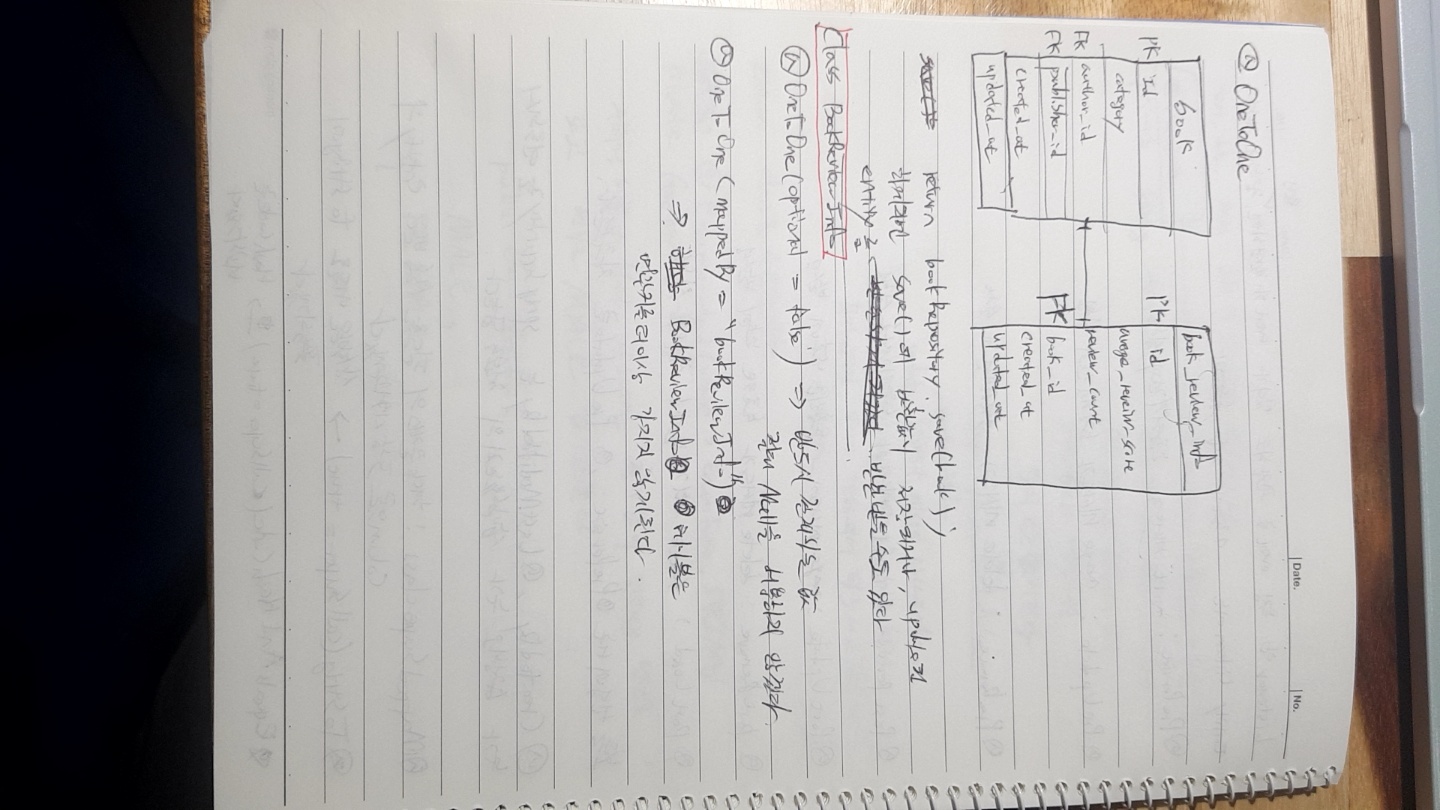 Date.
No.
@ OneToOne
book
PK id
category
FK author_id
FK publisher_id
created_at
updated_at
book_review_info
PK id
average_review_score
review_count
FK book_id
created_at
updated_at
return bookRepository.save(book);
하게되면 save()의 저장되거나, update된
entity를 반환받을 수도 있다
Class BookReviewInfo
@OneToOne(optional = false) => 반드시 존재하는 값
절대 Null을 허용하지 않겠다.
@OneToOne(mappedBy = "bookReviewInfo")
⇒ BookReviewInfo 테이블은
연관키를 더이상 가지지 않게된다.